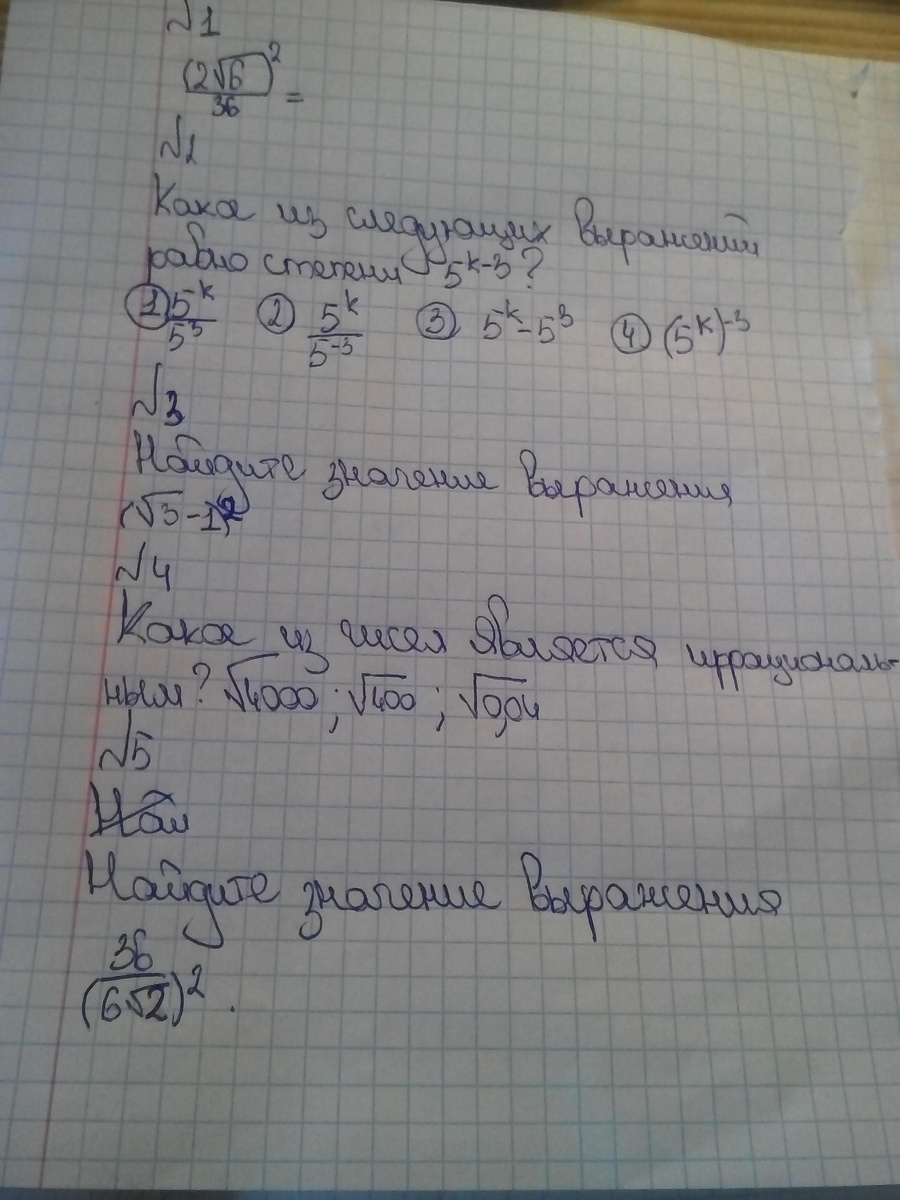 №1
(2√6)²/36 =
№2
Какое из следующих выражений
равно степени 5^(k-3)?
① 5^k/5^3 ② 5^k/5^(-3) ③ 5^k-5^3 ④ (5^k)^(-3)
№3
Найдите значение выражения
(√3-1)²
№4
Какое из чисел является иррациональ-
ным? √4000; √400; √0,04
№5
Найдите значение выражения
36/(6√2)².